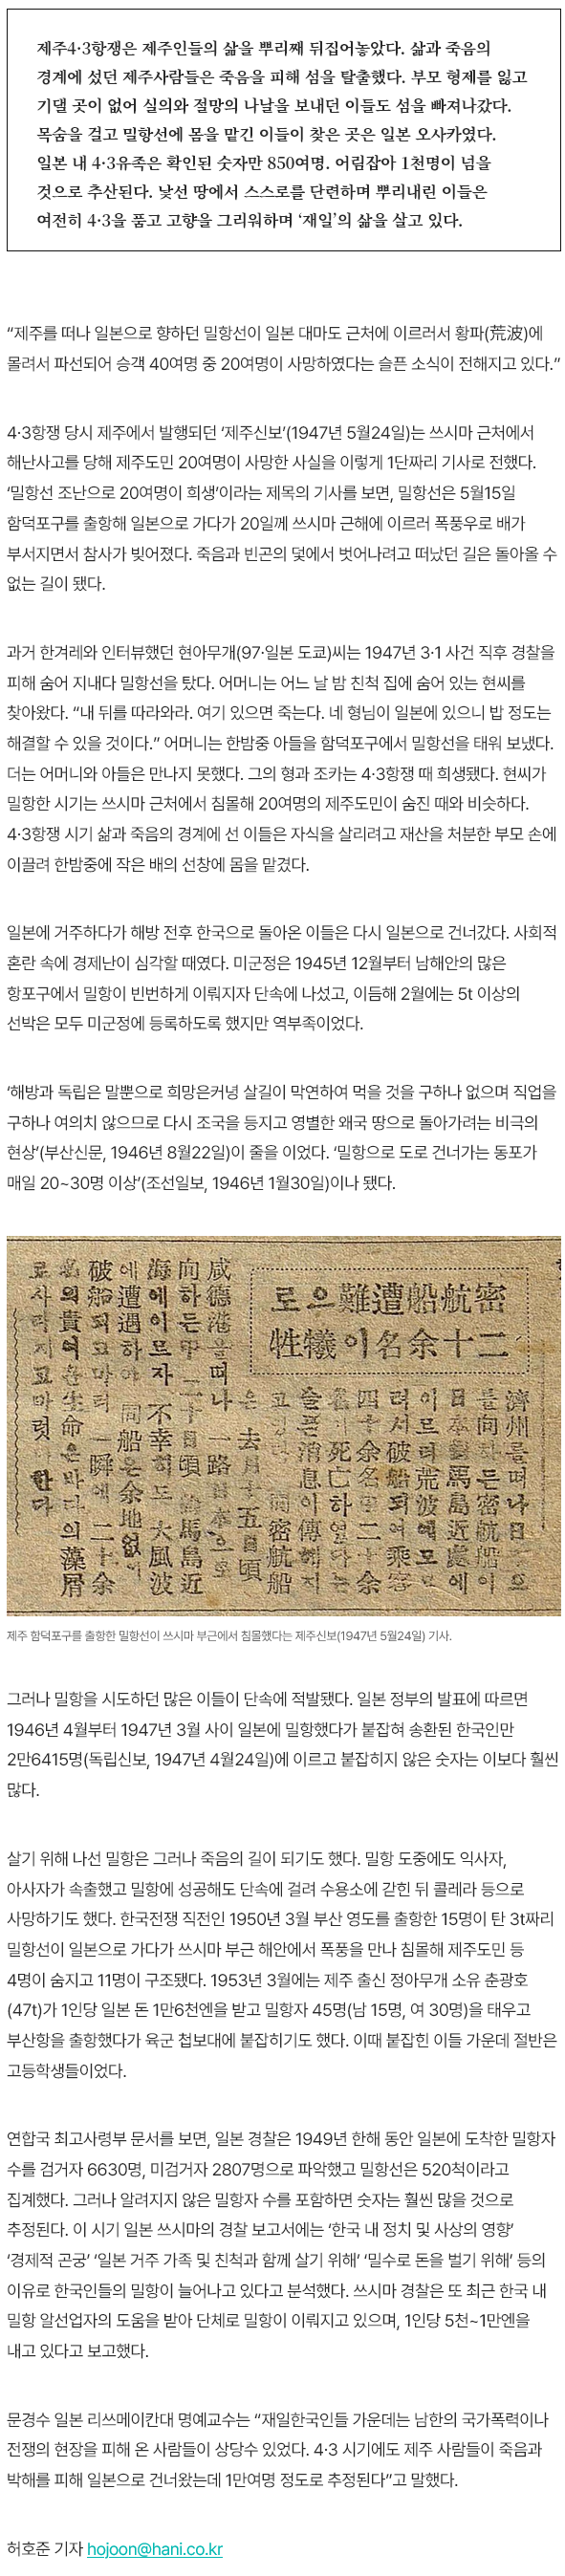 제주4·3항쟁은 제주인들의 삶을 뿌리째 뒤집어놓았다. 삶과 죽음의
경계에 섰던 제주사람들은 죽음을 피해 섬을 탈출했다. 부모 형제를 잃고
기댈 곳이 없어 실의와 절망의 나날을 보내던 이들도 섬을 빠져나갔다.
목숨을 걸고 밀항선에 몸을 맡긴 이들이 찾은 곳은 일본 오사카였다.
일본 내 4·3유족은 확인된 숫자만 850여명. 어림잡아 1천명이 넘을
것으로 추산된다. 낯선 땅에서 스스로를 단련하며 뿌리내린 이들은
여전히 4·3을 품고 고향을 그리워하며 ‘재일’의 삶을 살고 있다.
“제주를 떠나 일본으로 향하던 밀항선이 일본 대마도 근처에 이르러서 황파(荒波)에
몰려서 파선되어 승객 40여명 중 20여명이 사망하였다는 슬픈 소식이 전해지고 있다.”
4·3항쟁 당시 제주에서 발행되던 ‘제주신보’(1947년 5월24일)는 쓰시마 근처에서
해난사고를 당해 제주도민 20여명이 사망한 사실을 이렇게 1단짜리 기사로 전했다.
‘밀항선 조난으로 20여명이 희생’이라는 제목의 기사를 보면, 밀항선은 5월15일
함덕포구를 출항해 일본으로 가다가 20일께 쓰시마 근해에 이르러 폭풍우로 배가
부서지면서 참사가 빚어졌다. 죽음과 빈곤의 덫에서 벗어나려고 떠났던 길은 돌아올 수
없는 길이 됐다.
과거 한겨레와 인터뷰했던 현아무개(97·일본 도쿄)씨는 1947년 3·1 사건 직후 경찰을
피해 숨어 지내다 밀항선을 탔다. 어머니는 어느 날 밤 친척 집에 숨어 있는 현씨를
찾아왔다. “내 뒤를 따라와라. 여기 있으면 죽는다. 네 형님이 일본에 있으니 밥 정도는
해결할 수 있을 것이다.” 어머니는 한밤중 아들을 함덕포구에서 밀항선을 태워 보냈다.
더는 어머니와 아들은 만나지 못했다. 그의 형과 조카는 4·3항쟁 때 희생됐다. 현씨가
밀항한 시기는 쓰시마 근처에서 침몰해 20여명의 제주도민이 숨진 때와 비슷하다.
4·3항쟁 시기 삶과 죽음의 경계에 선 이들은 자식을 살리려고 재산을 처분한 부모 손에
이끌려 한밤중에 작은 배의 선창에 몸을 맡겼다.
일본에 거주하다가 해방 전후 한국으로 돌아온 이들은 다시 일본으로 건너갔다. 사회적
혼란 속에 경제난이 심각할 때였다. 미군정은 1945년 12월부터 남해안의 많은
항포구에서 밀항이 빈번하게 이뤄지자 단속에 나섰고, 이듬해 2월에는 5t 이상의
선박은 모두 미군정에 등록하도록 했지만 역부족이었다.
‘해방과 독립은 말뿐으로 희망은커녕 살길이 막연하여 먹을 것을 구하나 없으며 직업을
구하나 여의치 않으므로 다시 조국을 등지고 영별한 왜국 땅으로 돌아가려는 비극의
현상’(부산신문, 1946년 8월22일)이 줄을 이었다. ‘밀항으로 도로 건너가는 동포가
매일 20~30명 이상’(조선일보, 1946년 1월30일)이나 됐다.
密航船遭難으로
二十余名이犧牲
濟州를떠나日本으
로向하든密航船이
日本對馬島近處에
이르러荒波에모
려서破船되여乘客
四十余名中二十余
名이死亡하였다는
슬픈消息이傳해지
고있다 同密航船
은 去月十五日頃
咸德港을떠나 一路日本으로
向하든中二十日頃 對馬島近
海에이르자 不幸히도 大風波
에遭遇하야 同船은余地없이
破船되고마러 一瞬에 二十余
名의貴여운生命은바다의藻屑
로사라지고마럿다한다
제주 함덕포구를 출항한 밀항선이 쓰시마 부근에서 침몰했다는 제주신보(1947년 5월24일) 기사.
그러나 밀항을 시도하던 많은 이들이 단속에 적발됐다. 일본 정부의 발표에 따르면
1946년 4월부터 1947년 3월 사이 일본에 밀항했다가 붙잡혀 송환된 한국인만
2만6415명(독립신보, 1947년 4월24일)에 이르고 붙잡히지 않은 숫자는 이보다 훨씬
많다.
살기 위해 나선 밀항은 그러나 죽음의 길이 되기도 했다. 밀항 도중에도 익사자,
아사자가 속출했고 밀항에 성공해도 단속에 걸려 수용소에 갇힌 뒤 콜레라 등으로
사망하기도 했다. 한국전쟁 직전인 1950년 3월 부산 영도를 출항한 15명이 탄 3t짜리
밀항선이 일본으로 가다가 쓰시마 부근 해안에서 폭풍을 만나 침몰해 제주도민 등
4명이 숨지고 11명이 구조됐다. 1953년 3월에는 제주 출신 정아무개 소유 춘광호
(47t)가 1인당 일본 돈 1만6천엔을 받고 밀항자 45명(남 15명, 여 30명)을 태우고
부산항을 출항했다가 육군 첩보대에 붙잡히기도 했다. 이때 붙잡힌 이들 가운데 절반은
고등학생들이었다.
연합국 최고사령부 문서를 보면, 일본 경찰은 1949년 한해 동안 일본에 도착한 밀항자
수를 검거자 6630명, 미검거자 2807명으로 파악했고 밀항선은 520척이라고
집계했다. 그러나 알려지지 않은 밀항자 수를 포함하면 숫자는 훨씬 많을 것으로
추정된다. 이 시기 일본 쓰시마의 경찰 보고서에는 ‘한국 내 정치 및 사상의 영향’
‘경제적 곤궁’ ‘일본 거주 가족 및 친척과 함께 살기 위해’ ‘밀수로 돈을 벌기 위해’ 등의
이유로 한국인들의 밀항이 늘어나고 있다고 분석했다. 쓰시마 경찰은 또 최근 한국 내
밀항 알선업자의 도움을 받아 단체로 밀항이 이뤄지고 있으며, 1인당 5천~1만엔을
내고 있다고 보고했다.
문경수 일본 리쓰메이칸대 명예교수는 “재일한국인들 가운데는 남한의 국가폭력이나
전쟁의 현장을 피해 온 사람들이 상당수 있었다. 4·3 시기에도 제주 사람들이 죽음과
박해를 피해 일본으로 건너왔는데 1만여명 정도로 추정된다”고 말했다.
허호준 기자 hojoon@hani.co.kr